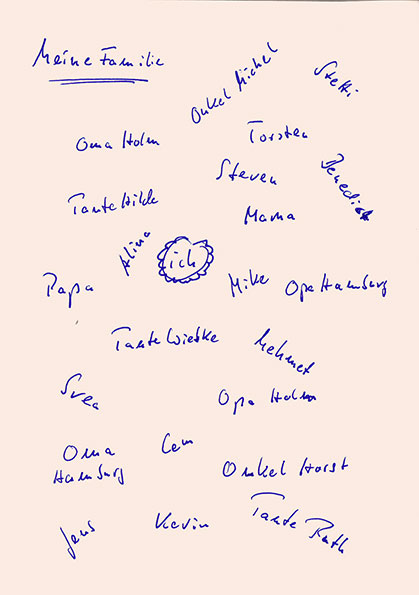 Meine Familie
Onkel Michel
Steffi
Oma Holm
Torsten
Steven
Benedict
Tante Hilde
Mama
Alina
ich
Papa
Mike
Opa Hamburg
Tante Wiebke
Mehmet
Svea
Opa Holm
Oma
Hamburg
Cem
Onkel Horst
Jens
Kevin
Tante Ruth